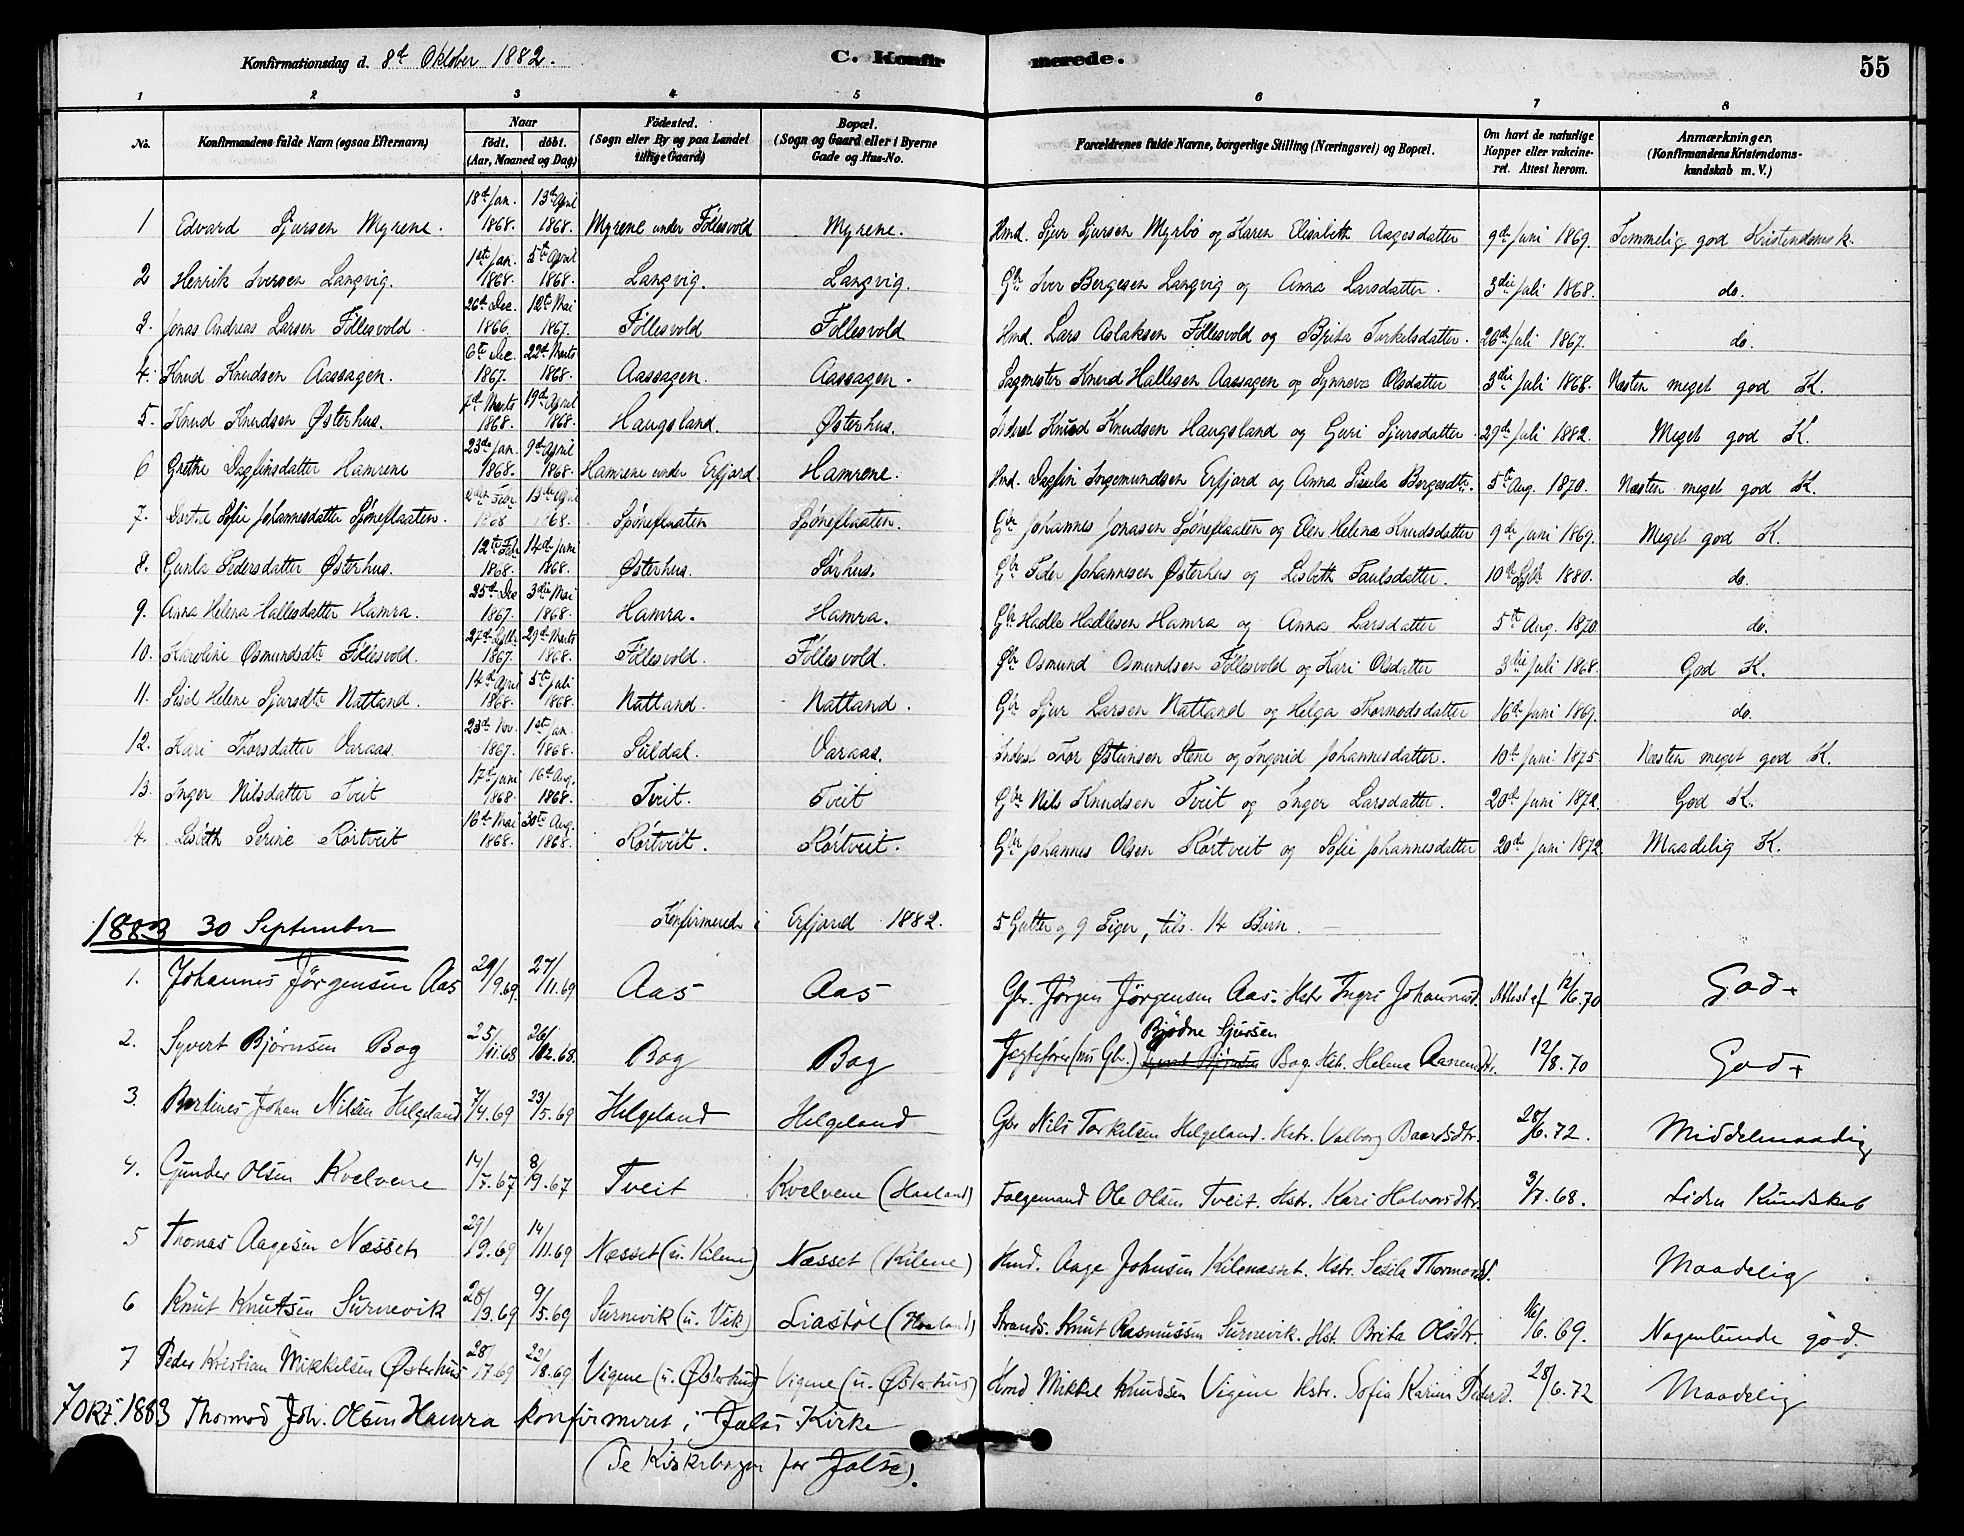 Konfirmationsdag d. 8de Oktober 1882. C. Konfirmerede. 55
1 2 3 4 5 6 7 8
No. Konfirmandens fulde Navn (ogsaa Efternavn) Naar födt, döbt. (Aar, Maaned og Dag) Födested. (Sogn eller By og paa Landet tillige Gaard) Bopæl. (Sogn og Gaard eller i Byerne Gade og Hus-No. Forældrenes fulde Navne, borgerlige Stilling (Næringsvei) og Bopæl. Om havt de naturlige Kopper eller vakcineret. Attest herom. Anmærkninger, (Konfirmandens Kristendomskundskab m. V.)
1 Edvard Sjursen Myrene. 18de Jan. 1868. 13de April 1868. Myrene under Föllesvold Myrene. Hmd. Sjur Sjursen Myrbö og Karen Elisabeth Aagesdatter 9de Juni 1869. Temmelig god Kristendomsk.
2 Henrik Iversen Langvig. 1ste Jan. 1868. 5te April 1868. Langvig. Langvig. Gbr Iver Bergesen Langvig og Anna Larsdatter. 3die Juli 1868. do.
3. Jonas Andreas Larsen Föllesvold. 26de Dec. 1866. 12te Mai 1867. Föllesvold Föllesvold Hmd. Lars Aslaksen Föllesvold og Brita Torkelsdatter. 26de Juli 1867. do.
4. Knud Knudsen Aassagen. 6te Dec. 1867. 22de Marts 1868. Aassagen. Aassagen. Sagmester Knud Hallesen Aassagen og Synneva Olsdatter 3die Juli 1868. Næsten meget god K.
5. Knud Knudsen Østerhus. 7de Marts 1868. 19de April 1868. Haugsland. Østerhus. Inderst Knud Knudsen Haugsland og Guri Sjursdatter. 29de Juli 1882. Meget god K.
6 Grethe Dagfinsdatter Hamrene 23de Jan. 1868. 9de April 1868. Hamrene under Erfjord. Hamrene. Hmd. Dagfin Ingemundsen Erfjord og Anna Sisela Bergesdtr. 5te Aug. 1870. Næsten meget god K.
7. Dorthe Sofie Johannesdatter Spöneflaaten. Febr. 1868 13de April 1868. Spöneflaaten Spöneflaaten. Gbr Johannes Jonasen Spöneflaaten og Elen Helena Knudsdatter 9de Juni 1869. Meget god K.
8. Gunla Pedersdatter Østerhus. 12te Feb. 1868. 14de Juni 1868. Østerhus. Sörhus. Gbr Peder Johannesen Østerhus og Lisbeth Paulsdatter. 10de Sptb 1880. do.
9. Anna Helena Hallesdatter Hamra. 25de Dec 1867. 3die Mai 1868. Hamra. Hamra. Gbr Hadle Hadlesen Hamra og Anna Larsdatter 5te Aug. 1870. do.
10. Karoline Osmundsdtr Föllesvold. 27de Sptbr. 1867. 29de Marts 1868. Föllesvold. Föllesvold. Gbr Osmund Osmundsen Föllesvold og Kari Olsdatter 3die Juli 1868. God K.
11. Sisel Helene Sjursdtr Natland. 14de April 1868. 5te Juli 1868. Natland. Natland. Gbr Sjur Larsen Natland og Helga Thormodsdatter 16de Juni 1869. do.
12. Kari Thorsdatter Varaas. 23de Nov. 1867. 1ste Jan. 1868. Suldal. Varaas. Inderst Tor Østeinsen Stene og Ingerid Johannesdatter. 10de Juni 1875. Næsten meget god K.
13. Inger Nilsdatter Tveit 17de Juni 1868. 16de Aug. 1868. Tveit. Tveit Gbr Nils Knudsen Tveit og Inger Larsdatter. 20de Juni 1872. God K.
14. Lisbeth Serine Körtveit 16de Mai 1868. 30te Aug. 1868. Körtveit. Körtveit. Gbr Johannes Olsen Körtveit og Sofie Johannesdatter 20de Juni 1872. Maadelig K.
Konfirmerede i Erfjord 1882. 5 Gutter og 9 Piger, tils. 14 Börn.
1883 30 September
1. Johannes Jörgensen Aas 29/9.69. 27/11.69 Aas Aas Gbr. Jörgen Jörgensen Aas. Hstr. Ingri Johannesd. Attest af 12/6.70 God+
2. Syvert Björnsen Bog 25/11.68 26/12.68. Bog Bog Jegtefører (nu Gbr.) Bjödne Sjursen Bog. Hstr. Helena Aanensdtr. 12/8.70 God+
3. Bertines Johan Nilsen Helgeland 7/4.69 23/5.69 Helgeland Helgeland Gbr Nils Torkelsen Helgeland. Hstr. Valborg Baardsdtr. 28/6.72. Middelmaadig
4. Gunder Olsen Kvelvene 14/7.67 8/9.67 Tveit Kvelvene (Haaland) Folgemand Ole Olsen Tveit. Hstr. Kari Halvorsdtr. 3/7.68. Liden Kundskab
5 Thomas Aagesen Næsset 29/9.69 14/11.69 Næsset (u. Kilene) Næsset (Kilene) Hmd. Aage Johnsen Kilenæsset. Hstr. Sesila Thormodsd. Maadelig
6 Knut Knutsen Surnevik 28/3.69 9/5.69 Surnevik (u. Vik) Liastöl (Haaland) Strands. Knut Rasmussen Surnevik. Hst. Brita Olsdtr. 16/6.69. Nogenlunde god.
7 Peder Kristian Mikkelsen Østerhus 28/7.69 22/8.69 Vigene (u. Østerhus) Vigene (u. Østerhus) Hmd Mikkel Knudsen Vigene Hstr. Sofia Karine Pedersd. 28/6.72 Maadelig
7 Okt. 1883 Thormod Joh. Olsen Hamra konfirmeret i Jelse Kirke
(Se Kirkebogen for Jelse).